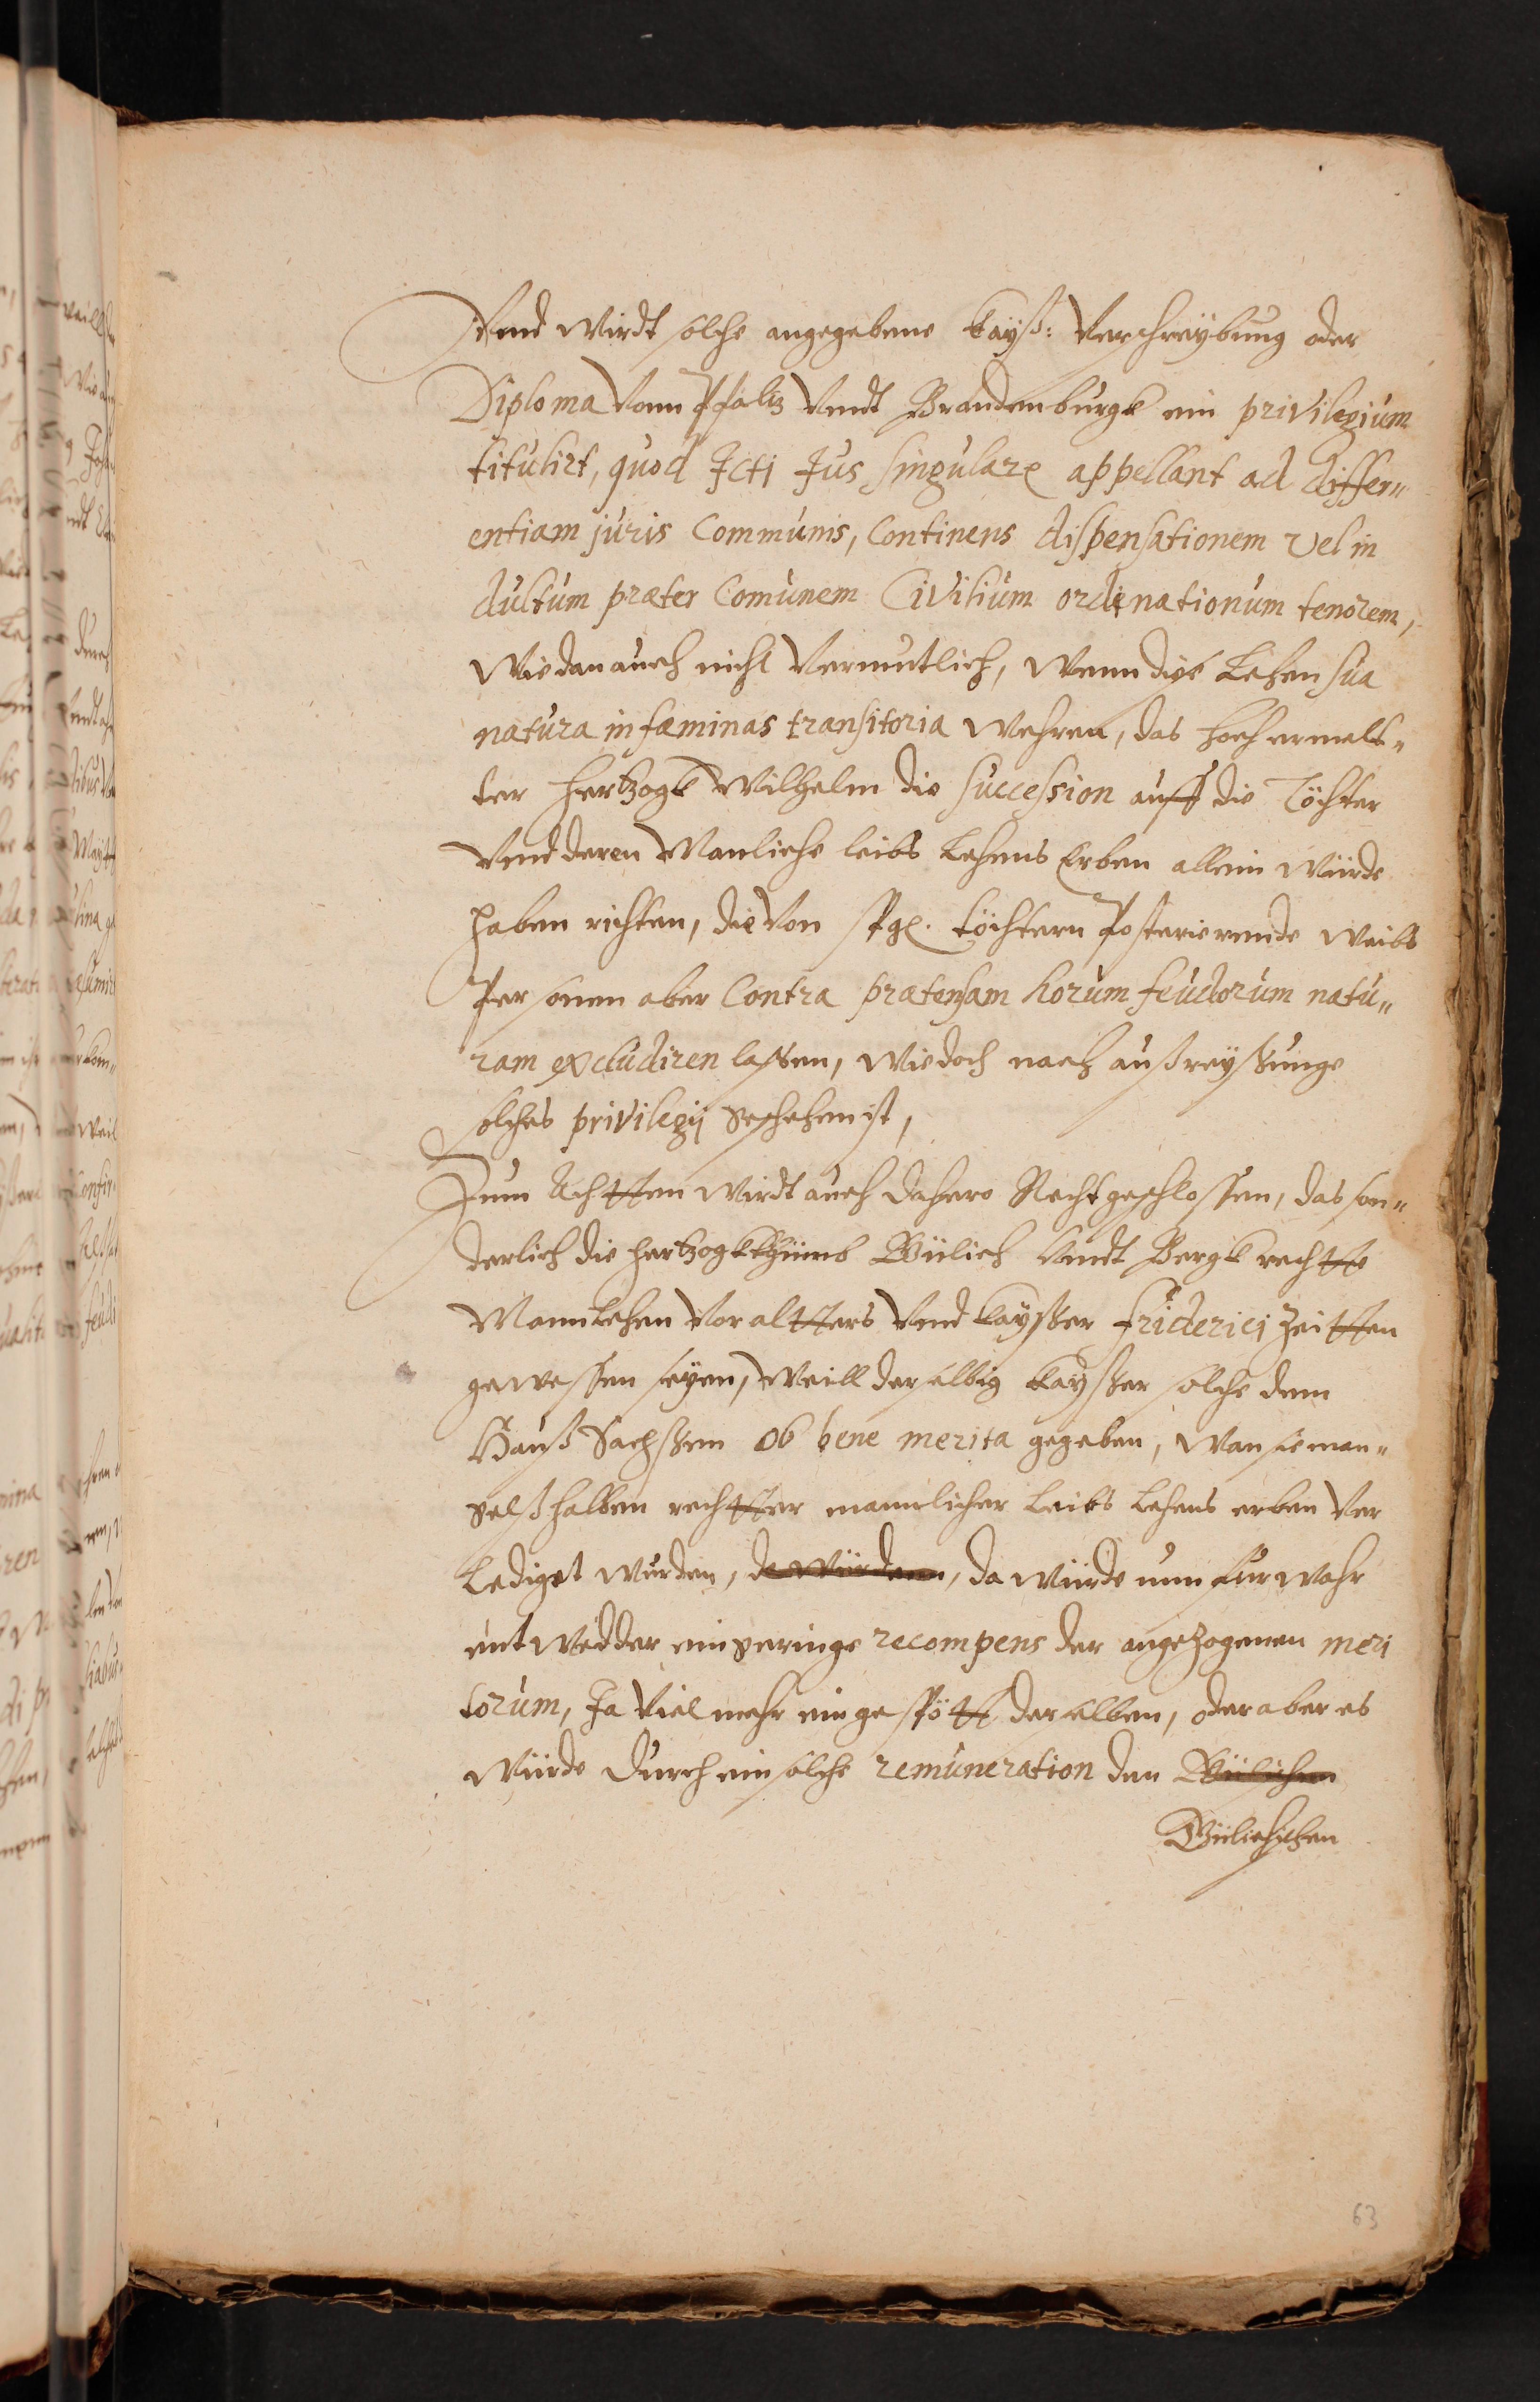 Vnnd wirdt solche angegebene kayß: Verschreybung oder
Diploma vonn Pfaltz vnndt Brandenburgk ein privilegium
titulirt, quod Jcti Jus singulare appellant ad differ„
entiam juris Communis, Continens dispensationem vel in
dultum præter Comunem Civilium ordinationum tenorem,
wie dan auch nicht vermutlich, wenn diße Lehen sua
natura in fæminas transitoria wehren, das hoch ermelt„
ter Hertzogk Wilhelm die succession auff die Töchter
vnnd deren Manliche leibs Lehens Erben allein würde
haben richten, die von töchtern Posterierende weibs
Personen aber Contra prætensam horum feudorum natu„
ram excludiren lassen, wie doch nach außreyssunge
solches privilegij geschehen ist,
Zum Achtten wirdt auch dahero Recht geschlossen, das son„
derlich die Hertzogkthümb Gülich vnndt Bergk rechtte
Mannlehen vor altters vnnd kaysser friderici zeitten
gewessen seyen, weill derselbig kaysser solche dem
Hauß Sachssen ob bene merita gegeben, wan sie man„
gelß halben rechtter mannlicher leibs Lehens erben ver
lediget wurden, da würden, da würde nun furwahr
entwedder ein geringe recompens der angezogenen meri
torum, Ja viel mehr ein gespött derselben, oder aber es
würde durch ein solche remuneration den Gülichen
Gülichschen
63